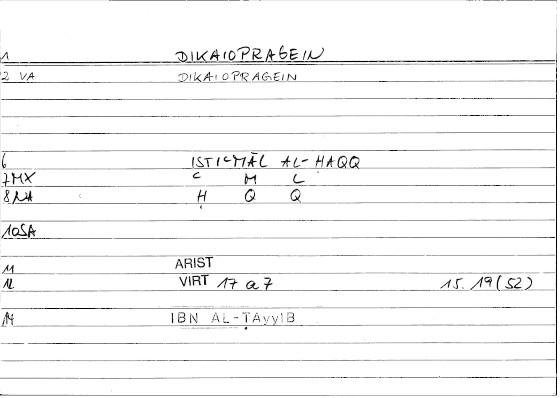 1 DIKAIOPRAGEIN
2 VA DIKAIOPRAGEIN
6 ISTIʿMĀL AL-ḤAQQ
7MX ʿ M L
8NA Ḥ Q Q
10SA
11 ARIST
12 VIRT 17 a 7 15.19(52)
14 IBN AL-ṬAyyIB